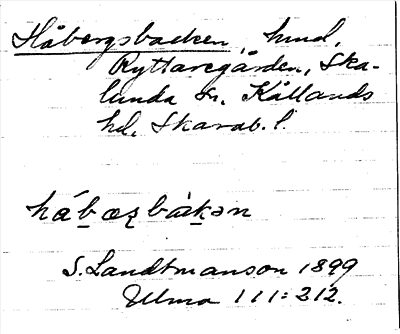 Håbergsbacken, hmd,
Ryttaregården, Ska-
lunda sn, Kållands
hd, Skarab. l.
hábæʀbàkən
S. Landtmanson 1899
Ulma 111:212.